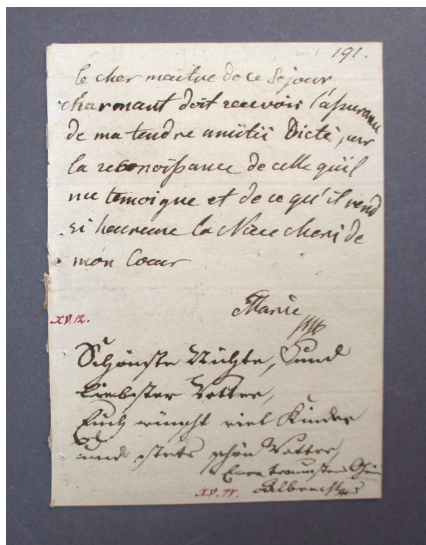 191.
le cher maitre de ce Sejour
charmant doit recevoir l'assurance
de ma tendre amitié Dicté par
la reconoissance de celle qu'il
me temoigne et de ce qu'il rend
si heureuse la Niece cheri de
mon Cœur
Marie
XV.12.
Schönste Nichte, und
Liebster Vetter,
Euch wünscht viel Kinder
und stets schön Wetter,
Albrecht